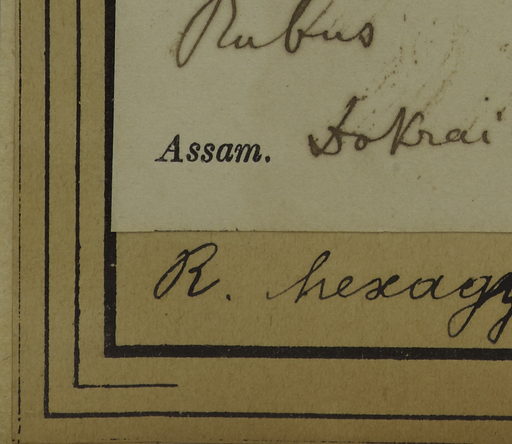 Rubus
Assam. Dokrai
R. hexagy